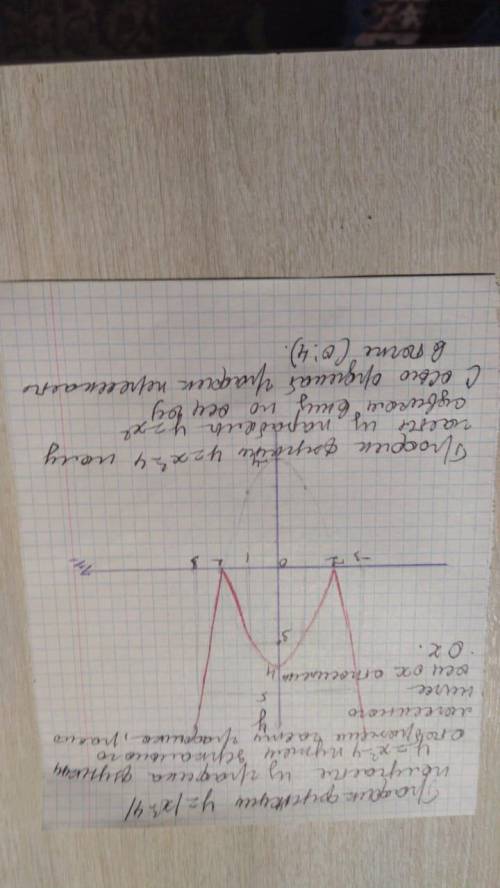 График функции y=|x²-4|
получается из графика функции
y=x²-4 путем зеркального
отображения части графика, распо
ложенного
ниже
оси ox относительно
Ox.
y
5
4
3
-3 -2 0 1 2 3
-4
График функции y=x²-4 полу
чается из параболы y=x²
сдвигом вниз по оси oy
С осью ординат график пересекается
в точке (0;4).